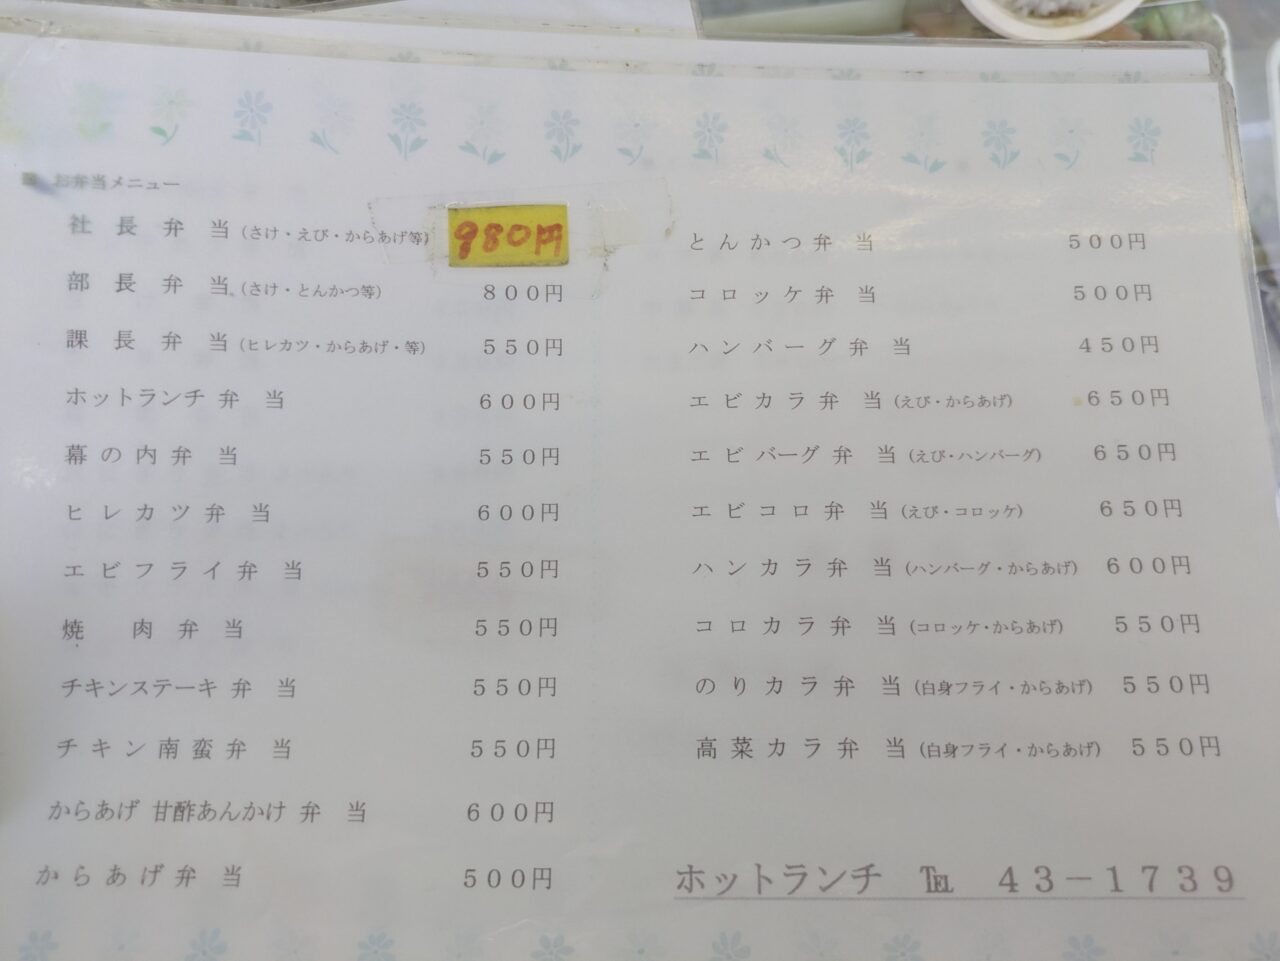 ■ お弁当メニュー
社長弁当(さけ・えび・からあげ等) 980円
部長弁当(さけ・とんかつ等) 800円
課長弁当(ヒレカツ・からあげ・等) 550円
ホットランチ弁当 600円
幕の内弁当 550円
ヒレカツ弁当 600円
エビフライ弁当 550円
焼肉弁当 550円
チキンステーキ弁当 550円
チキン南蛮弁当 550円
からあげ甘酢あんかけ弁当 600円
からあげ弁当 500円
とんかつ弁当 500円
コロッケ弁当 500円
ハンバーグ弁当 450円
エビカラ弁当(えび・からあげ) 650円
エビバーグ弁当(えび・ハンバーグ) 650円
エビコロ弁当(えび・コロッケ) 650円
ハンカラ弁当(ハンバーグ・からあげ) 600円
コロカラ弁当(コロッケ・からあげ) 550円
のりカラ弁当(白身フライ・からあげ) 550円
高菜カラ弁当(白身フライ・からあげ) 550円
ホットランチ ℡ 43-1739